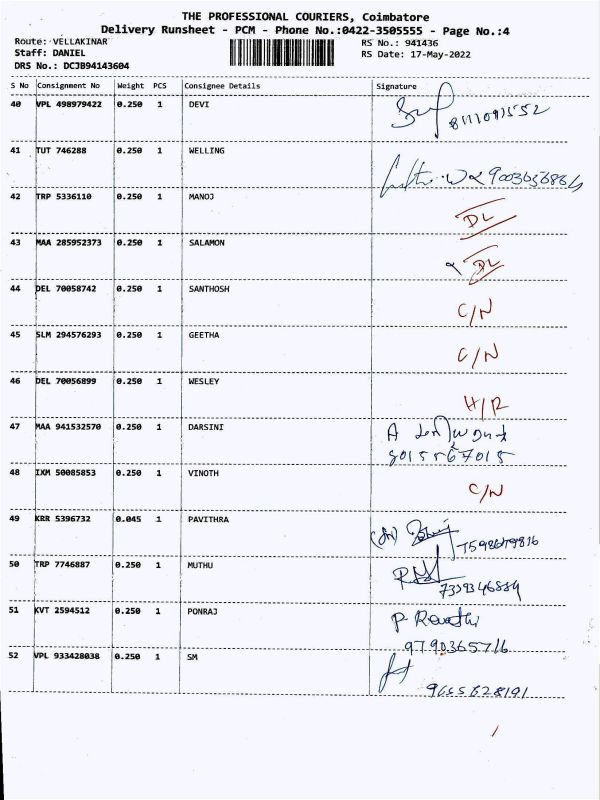 THE PROFESSIONAL COURIERS, Coimbatore
Delivery Runsheet - PCM - Phone No.:0422-3505555 - Page No.:4
Route: VELLAKINAR RS No.: 941436
Staff: DANIEL RS Date: 17-May-2022
DRS No.: DCJB94143604
S No Consignment No Weight PCS Consignee Details Signature
40 VPL 498979422 0.250 1 DEVI
41 TUT 746288 0.250 1 WELLING
42 TRP 5336110 0.250 1 MANOJ DL
43 MAA 285952373 0.250 1 SALAMON DL
44 DEL 70058742 0.250 1 SANTHOSH C/N
45 SLM 294576293 0.250 1 GEETHA C/N
46 DEL 70056899 0.250 1 WESLEY H/R
47 MAA 941532570 0.250 1 DARSINI A
8015567015
48 IXM 50085853 0.250 1 VINOTH C/N
49 KRR 5396732 0.045 1 PAVITHRA
50 TRP 7746887 0.250 1 MUTHU
7339346884
51 KVT 2594512 0.250 1 PONRAJ P Revathi
9790365716
52 VPL 933428038 0.250 1 SM
9655628191